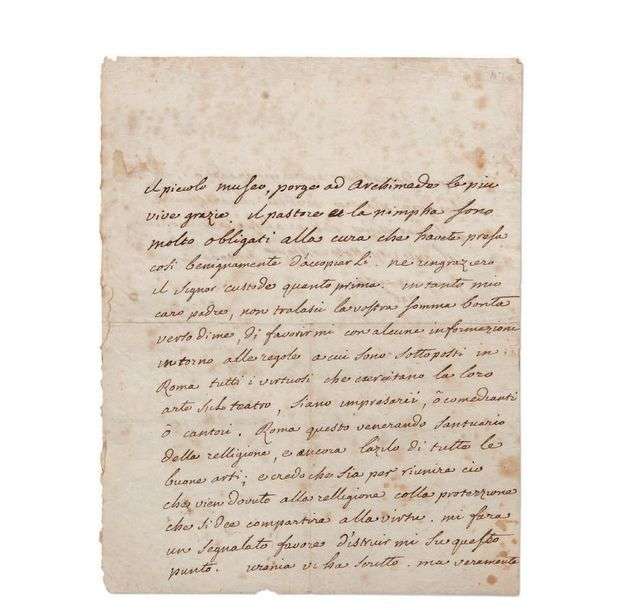 il piccolo museo, porge ad Archimado le piu
vive grazie. il pastore et la nimpha sono
molto obligati alla cura che havete presa
cosi benignamente d'accopiarli. ne ringraziero
il signor custode quanto prima. intanto mio
caro padre, non tralasii la vostra somma bonta
verso di me, di favorirmi con alcune informazioni
intorno alle regole a cui sono sottoposti in
Roma tutti i virtuosi che exercitano la loro
arte sul teatro, siano impresarii, ò comedianti
ò cantori. Roma questo venerando santuario
della relligione, e ancora l'azilo di tutte le
buone arti; e credo che sia per riunire cio
che vien dovuto alla relligione colla protezzione
che si dee compartire alla virtu. mi fara
un segnalato favore d'istruirmi su questo
punto. urania vi ha scritto. ma veramente